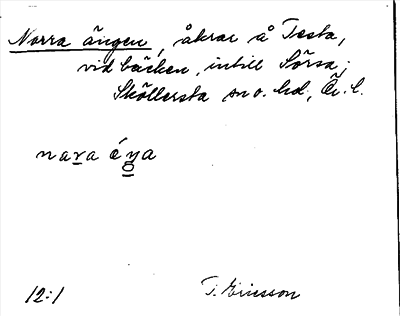 Norra ängen, åkrar å Testa,
vid bäcken, intill Sörsa;
Sköllersta sn o. hd, Ör. l.
nara
12:1 T. Ericsson